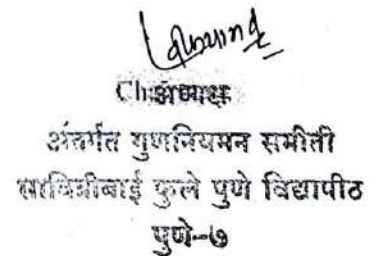 अध्यक्ष
अंतर्गत गुणनियमन समीती
सावित्रीबाई फुले पुणे विद्यापीठ
पुणे-७